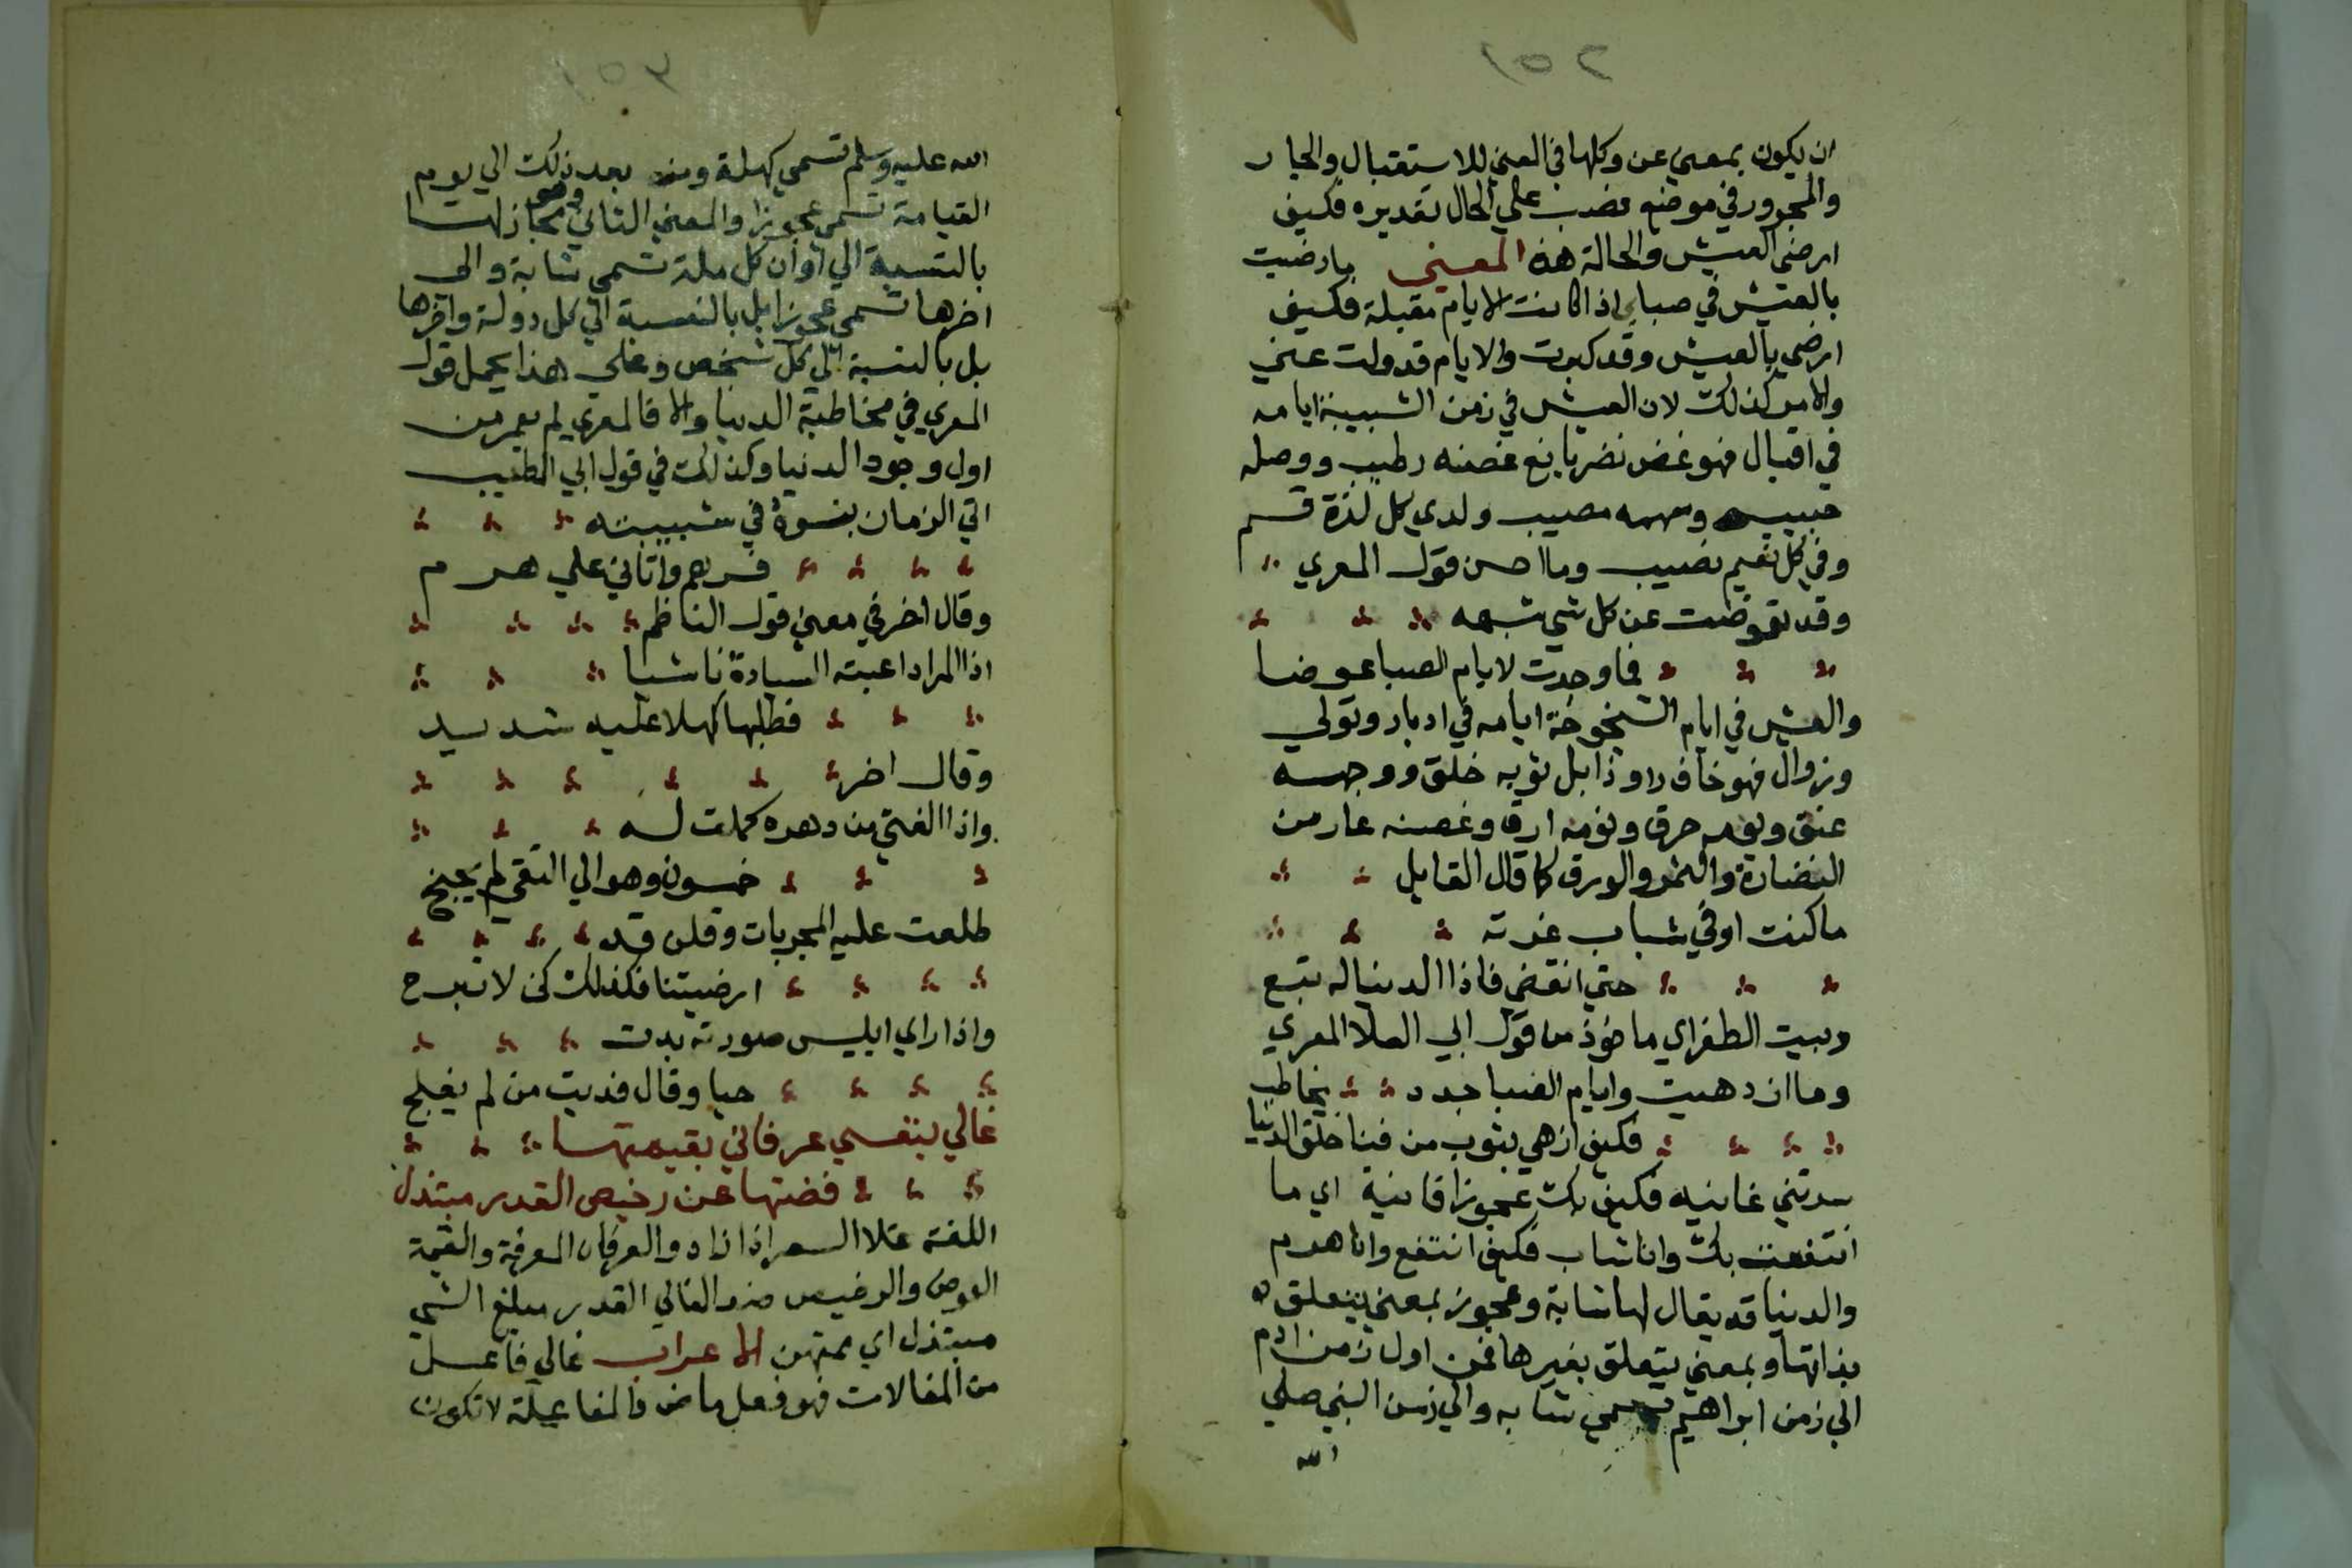 ان يكون بمعني عن وكلها في المعني للاستقبال والجار
والمجرور في موضع نصب علي الحال تقديره فكيف
ارضي العيش والحالة هذه المعني ما رضيت
بالعيش في صباي اذا كانت الايام مقبلة فكيف
ارضي بالعيش وقد كبرت والايام قد ولت عني
والامر كذلك لان العيش في زمن الشبيبة ايامه
في اقبال فهو غض نضر يانع غصنه رطيب ووصله
حبيب وسهمه مصيب ولدي كل لذة قسم
وفي كل نعيم نصيب وما احسن قول المعري
وقد تعوضت عن كل شي شبهه
فما وجدت لايام الصبا عوضا
والعيش في ايام الشيخوخة ايامه في ادبار وتولي
وزوال فهو خاف داو ذابل ثوبه خلق ووجهه
عنق ويومه حرق ونومه ارق وغصنه عار من
النضارة والثمر والورق كما قال القايل
ما كنت اوفي شباب غرته
حتي انقضي فاذا الدنيا له تبع
وبيت الطغراي ماخوذ من قول ابي العلا المعري
وما ازدهيت وايام الصبا جدد يخاطب
فكيف ازهي بثوب من فنا خلق الدنيا
سرتني غانيه فكيف بك عجوزا فانية اي ما
انتفعت بك وانا شاب فكيف انتفع وانا هرم
والدنيا قد يقال لها شابة وعجوز بمعني يتعلق
بذاتها وبمعني يتعلق بغيرها فمن اول زمن ادم
الي زمن ابراهيم تسمي شابه والي زمن النبي صلي
الله
الله عليه وسلم تسمي كهلة ومن بعد ذلك الي يوم
القيامة تسمي عجوزا والمعني الثاني وهو مجاز لها
بالنسبة الي اوان كل ملة تسمي شابة والي
اخرها تسمي عجوزا بل بالنسبة الي كل دولة واخرها
بل بالنسبة الي كل شخص وعلي هذا يحمل قول
المعري في مخاطبة الدنيا والا فالمعري لم يعمر من
اول وجود الدنيا وكذلك في قول ابي الطيب
اتي الزمان بنوه في شبيبته
فسرهم واتاني علي هرم
وقال اخر في معني قول الناظم
اذا المرا اعيته السيادة ناشيا
فطلبها كهلا عليه شديد
وقال اخر
واذا الفتي من دهره كملت له
خمسون وهو الي التقي لم يجنح
طلعت عليه المجريات وقلن قد
ارضيتنا فكذلك كن لا تبرح
واذا راي ابليس صورته بدت
حيا وقال فديت من لم يفلح
غالي بنفسي عرفاني بقيمتها
فصنتها عن رخيص القدر مبتذل
اللغة غلا السعر اذا زاد والعرفان المعرفة والقيمة
العوض والرخيص ضد الغالي القدر مبلغ الشي
مبتذل اي ممتهن الاعراب غالي فاعل
من المغالات فهو فعل ماض والمفاعلة لا تكون